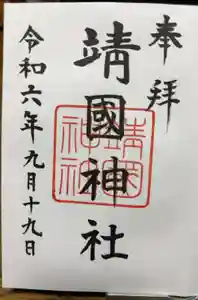 奉拝
靖國神社
令和六年九月十九日
靖國
神社